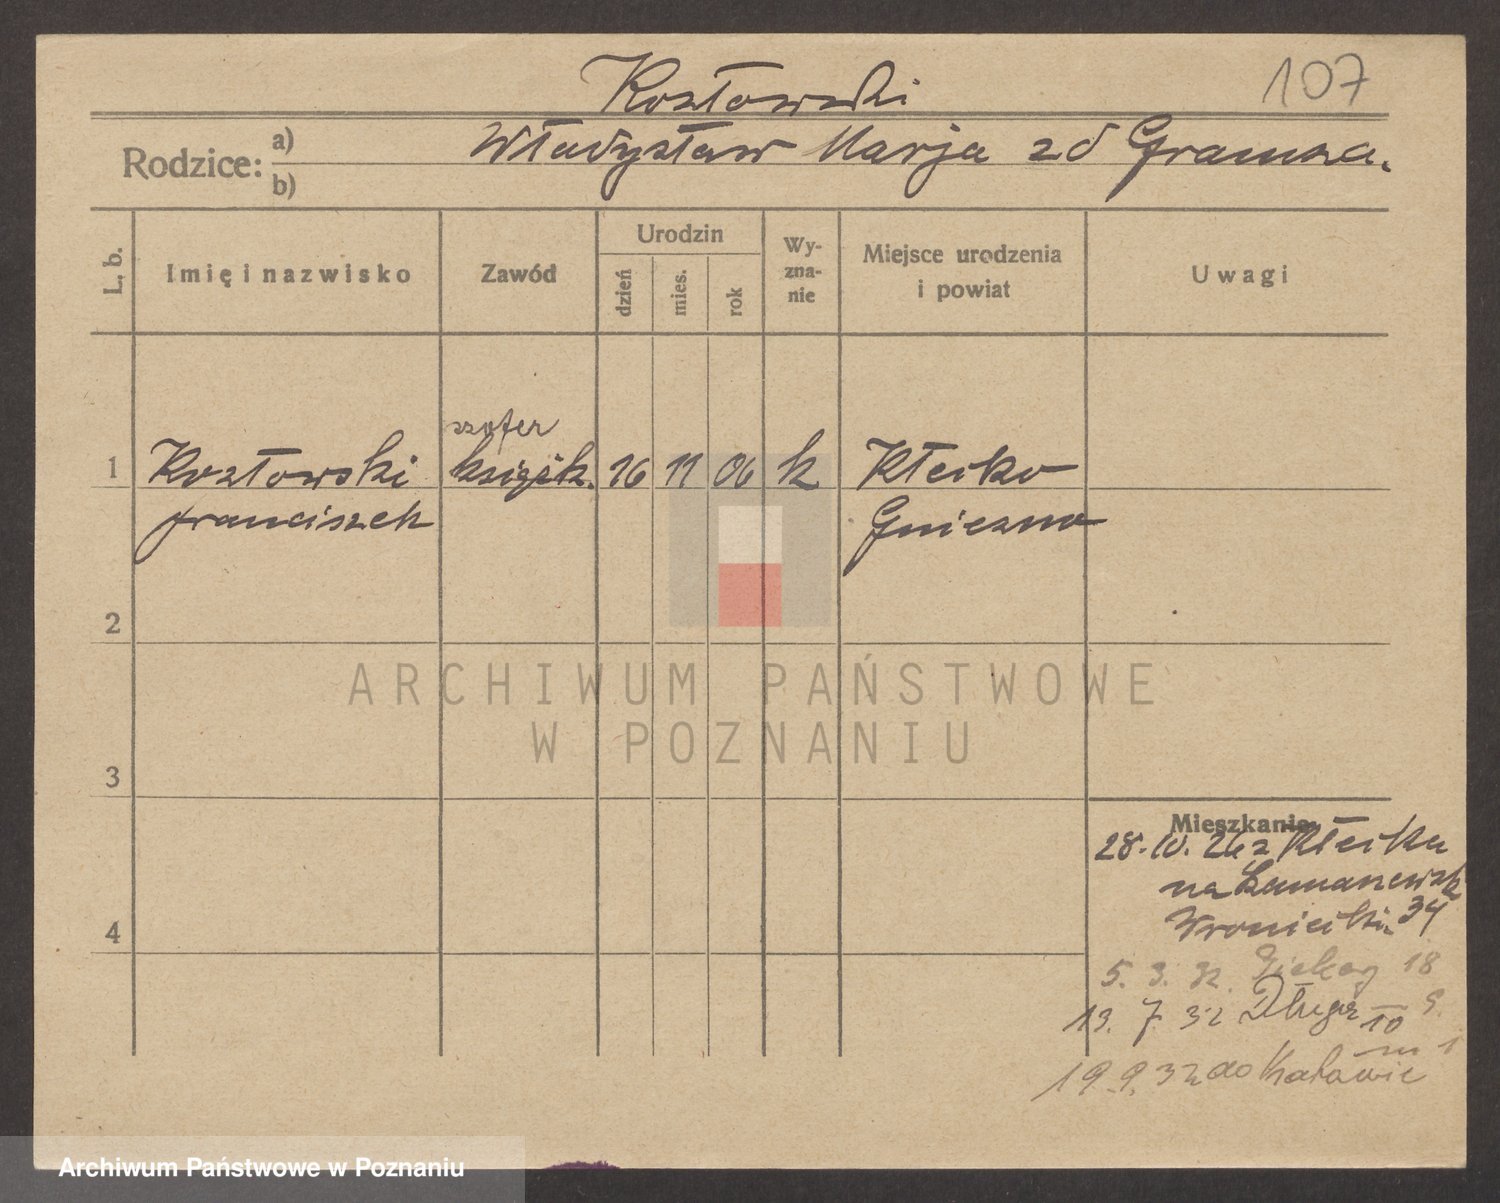 107
Kozłowski
Rodzice: a) Władysław Marja zd Gramza.
b)
L. b.
Imię i nazwisko
Zawód
Urodzin
dzień
mies.
rok
Wy-
zna-
nie
Miejsce urodzenia
i powiat
Uwagi
szofer
1 Kozłowski książk. 16 11 06 k Kłecko
Franciszek Gniezno
2
3
4
ARCHIWUM PAŃSTWOWE
W POZNANIU
Mieszkanie
28.10.26 z Kłecka
na
Wroniecki. 34
5. 3. 32. 18
13. 7 32 Długa 10
m 1
19.9.32 do Katowic
Archiwum Państwowe w Poznaniu